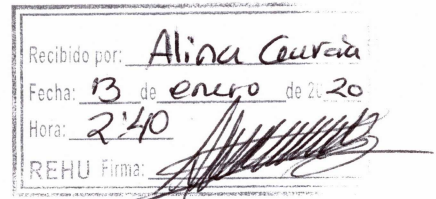 Recibido por: Alina García
Fecha: 13 de enero de 2020
Hora: 2:40
REHU Firma: